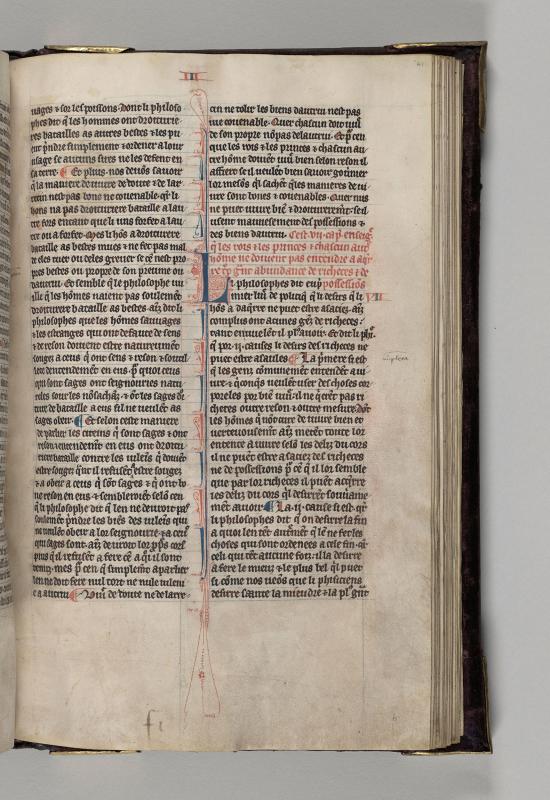 II
uages ⁊ sor les poissons. dont li philoso
phes dit q̄ les hommes ont droiturie
res batailles as autres bestes ⁊ les pu
ent p̄ndre simplement ⁊ ordener a lour
usage se aucuns sires ne les defent en
sa terre. ¶ Et plus nos devōs savoir
q̄ la maniere de vivre de voute ⁊ de lar
recin nest pas bone ne covenable. q̄r li
hons na pas droituriere bataille a lau
tre fors en tant que li uns forfet a lau
tre ou a forfet. Mes li hōs a droituriere
bataille as bestes mues ⁊ ne fet pas mal
de eles tuer ou deles grever se ce nest pro
pres bestes ou propre de son preime ou
dautrui. Et semble q̄ le philosophe vu
ille q̄ les hōmes naient pas soulemēt
droituriere bataille as bestes. aīz dit li
philosophes que les hōmes sauvages
⁊ les estranges qui ont defaute de sens
⁊ de reson doivent estre naturelmēt
souget a ceus q̄ ont sens ⁊ reson ⁊ soutil
lece dentendemēt en eus. p̄ quoi ceus
qui sont sages ont seignouries natu
reles sour les nōsachāz ⁊ ōt les sages di
ture de bataille a eus sil ne veulēt as
sages obeir. ¶ Et selon ceste maniere
de parler les citeins q̄ sont sages ⁊ ont
reson ⁊ entendemēt en eus ont droitu
riere bataille contre les vileīs q̄ doivēt
estre souges. q̄nt il refusēt estre souges
⁊ a obeir a ceus q̄ sōt sages ⁊ q̄ ont bo
ne reson en eus. ⁊ sembleroiēt selō cen
q̄ li philosophe dit q̄ len ne devroit pas
soulemēt p̄ndre les biēs des vileīs qui
ne veulēt obeir a lor seignourie ⁊ a ceus
qui sages sont. aīz devroit lor p̄p̄s cors
puis q̄l refusēt a fere ce a q̄ il sont
tenuz. mes p̄ cen q̄ simplemēt a parler
len ne doit fere nul tort ne nule vileni
e a autrui. ¶ Vivi de voute ne de larre-
cin ne tolir les biens dautrui nest pas
vie covenable. Quer chascun doit vivre
de son propre nō pas de lautrui. Et p̄ cen
que les rois ⁊ les princes ⁊ chascun au
tre hōme doivēt vivre bien selon reson il
affiert seil veulēt bien savoir govrner
lor mesōs qil sachēt q̄les manieres de vi
vre sont bones ⁊ covenables. Quer nus
ne puet vivre biē ⁊ droiturerēnt. seil
usent mauvesement des possessions ⁊
des biens dautrui. Cest .vii. cap̄. enseiḡ
q̄ les rois ⁊ les princes ⁊ chascun autre
hōme ne doivent pas entendre a aq̄r
re trop grāt abundance de richeces ⁊ de
Li philosophes dit cup possessiōs
u livre de politiq̄ q̄ li desirs q̄ li VII
hōs a daq̄rre ne puet estre asaciez. aīz
complius ont aucunes gēz de richeces:
tant en veulēt il pl̄s avoir. Et dit li phi.
q̄ por .ii. causes li desirs des richeces ne
puet estre asasiles ¶ La p̄miere si est
q̄ les genz cōmunemēt entendēt a vi
vre. ⁊ quonq̄s veulēt user des choses cor
poreles por biē vivre. si ne q̄rēt pas ri
checes outre reson ⁊ outre mesure. dōt
les hōmes q̄ nōt cure de vivre bien et
vertuousemēt. aīz metēt toute lor
entente a vivre selō les deliz du cors.
il ne puet estre asaziez des richeces
ne de possessions p̄ ce q̄ il lor semble
que par lor richeces il puēt acq̄rre
les deliz du cors qil desirrēt souvraine
ment avoir. ¶ La .ii. cause si est. q̄r
li philosophes dit q̄ on desirre la fin
a quoi len tēt autrēmt q̄ lē ne fet les
choses qui sont ordenees a cele fin. q̄r
celi qui tēt aucune fort. il la desirre
a fere le mieuz ⁊ le plus bel q̄il puet
si cōme nos veōs que li phisiciens
desirre sante la mieudre ⁊ la pl̄s grāt